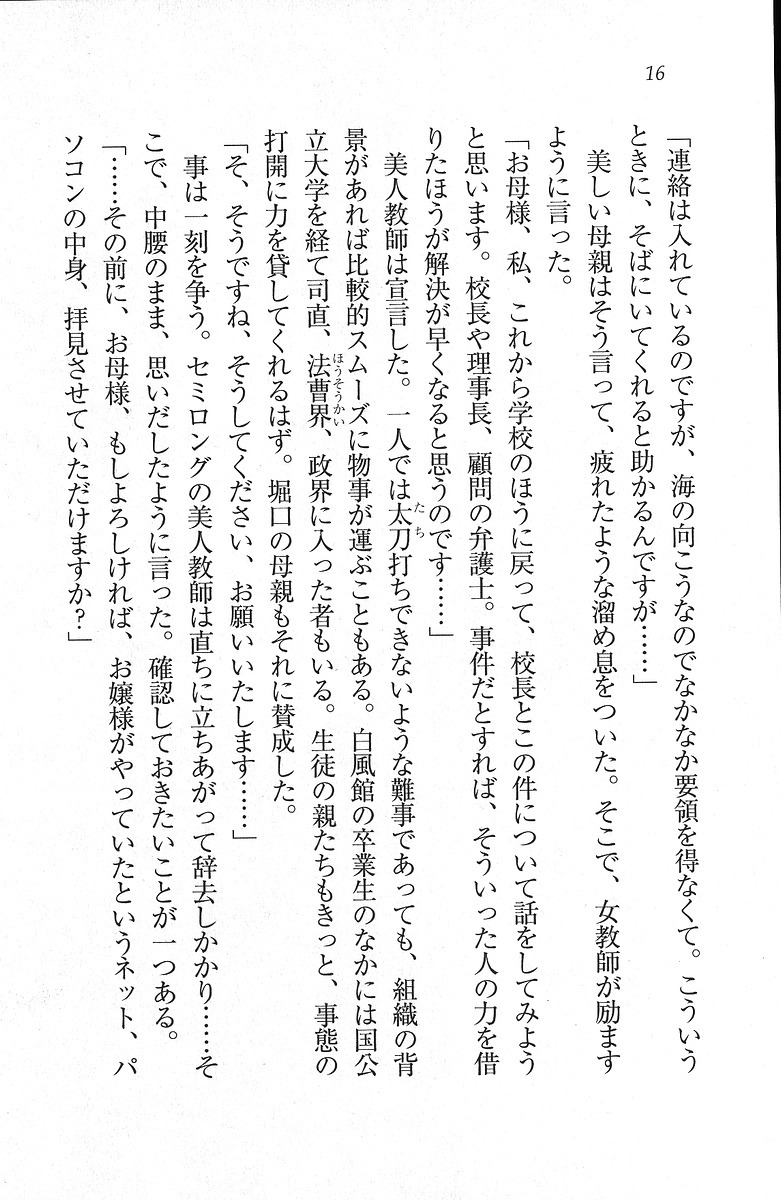 16
「連絡は入れているのですが、海の向こうなのでなかなか要領を得なくて。こういう
ときに、そばにいてくれると助かるんですが……」
美しい母親はそう言って、疲れたような溜め息をついた。そこで、女教師が励ます
ように言った。
「お母様、私、これから学校のほうに戻って、校長とこの件について話をしてみよう
と思います。校長や理事長、顧問の弁護士。事件だとすれば、そういった人の力を借
りたほうが解決が早くなると思うのです……」
美人教師は宣言した。一人では太刀打ちできないような難事であっても、組織の背
たち
景があれば比較的スムーズに物事が運ぶこともある。白風館の卒業生のなかには国公
立大学を経て司直、法曹界、政界に入った者もいる。生徒の親たちもきっと、事態の
ほうそうかい
打開に力を貸してくれるはず。堀口の母親もそれに賛成した。
「そ、そうですね、そうしてください、お願いいたします……」
事は一刻を争う。セミロングの美人教師は直ちに立ちあがって辞去しかかり……そ
こで、中腰のまま、思いだしたように言った。確認しておきたいことが一つある。
「……その前に、お母様、もしよろしければ、お嬢様がやっていたというネット、パ
ソコンの中身、拝見させていただけますか？」